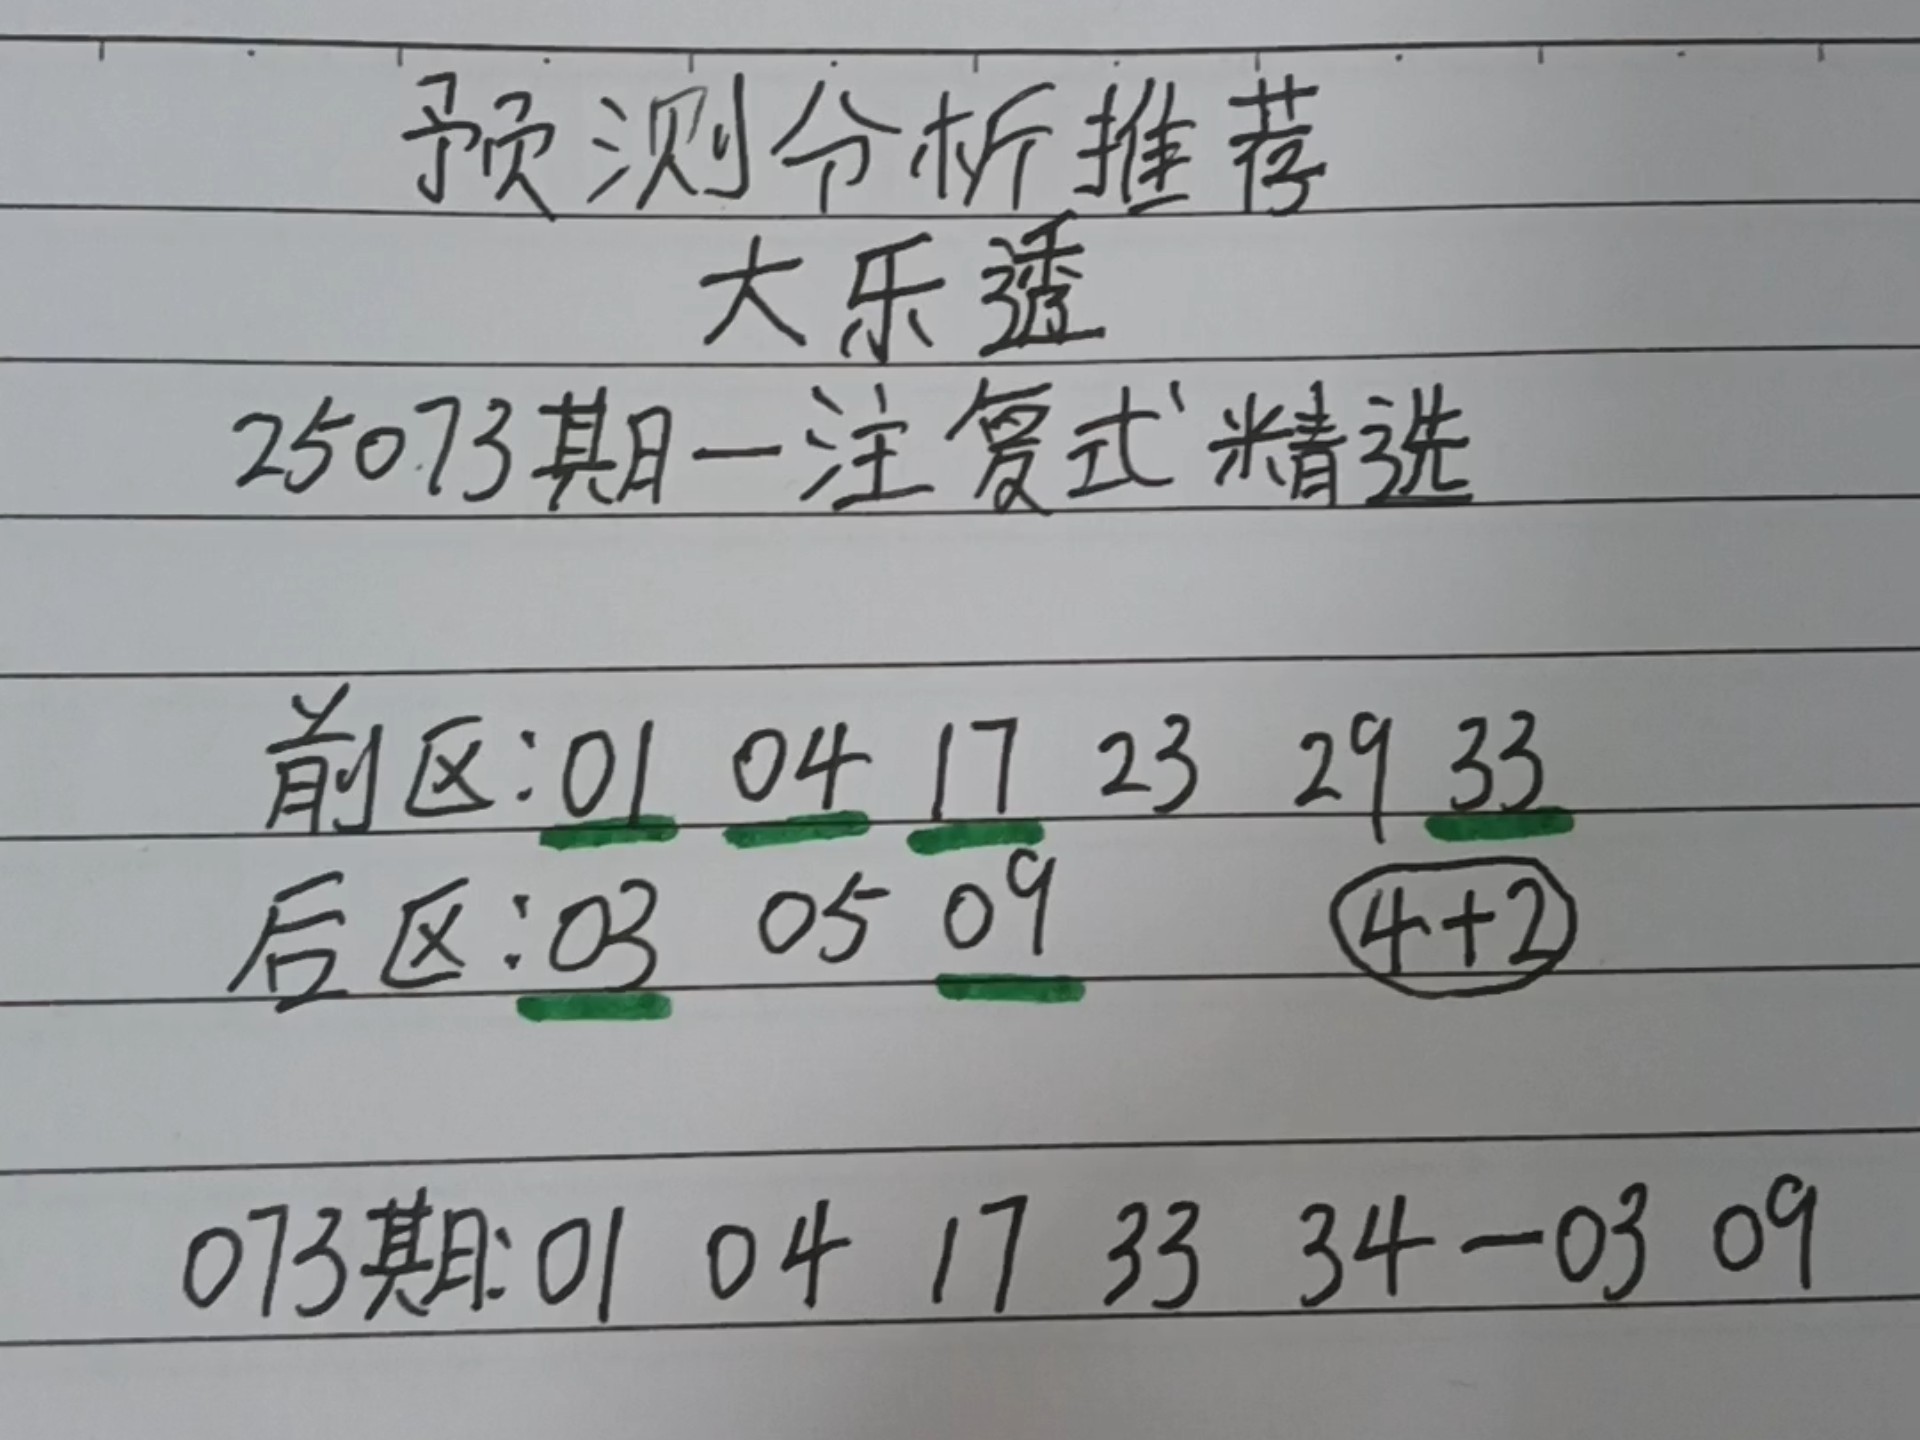 预测分析推荐
大乐透
25073期一注复式精选
前区:01 04 17 23 29 33
后区:03 05 09 4+2
073期:01 04 17 33 34—03 09